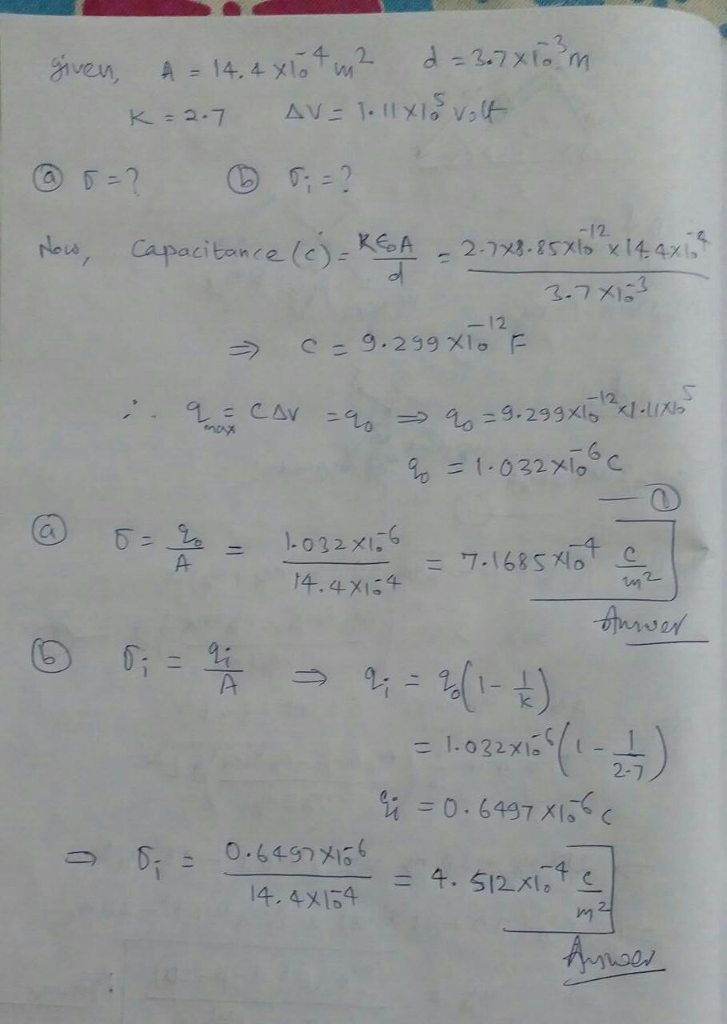 given, A = 14.4 x10^-4 m^2 d = 3.7 x10^-3 m
K = 2.7 ΔV = 1.11 x10^5 volt
(a) σ = ? (b) σi = ?
Now, Capacitance (c) = Kε0A/d = 2.7x8.85x10^-12 x 14.4x10^-4 / 3.7 x10^-3
⇒ C = 9.299 x10^-12 F
∴ qmax = CΔV = q0 ⇒ q0 = 9.299x10^-12 x1.11x10^5
q0 = 1.032 x10^-6 C
— (1)
(a) σ = q0/A = 1.032 x10^-6 / 14.4 x10^-4 = 7.1685 x10^-4 C/m^2
Answer
(b) σi = qi/A ⇒ qi = q0(1 - 1/K)
= 1.032x10^-6 (1 - 1/2.7)
qi = 0.6497 x10^-6 C
⇒ σi = 0.6497x10^-6 / 14.4x10^-4 = 4.512x10^-4 C/m^2
Answer